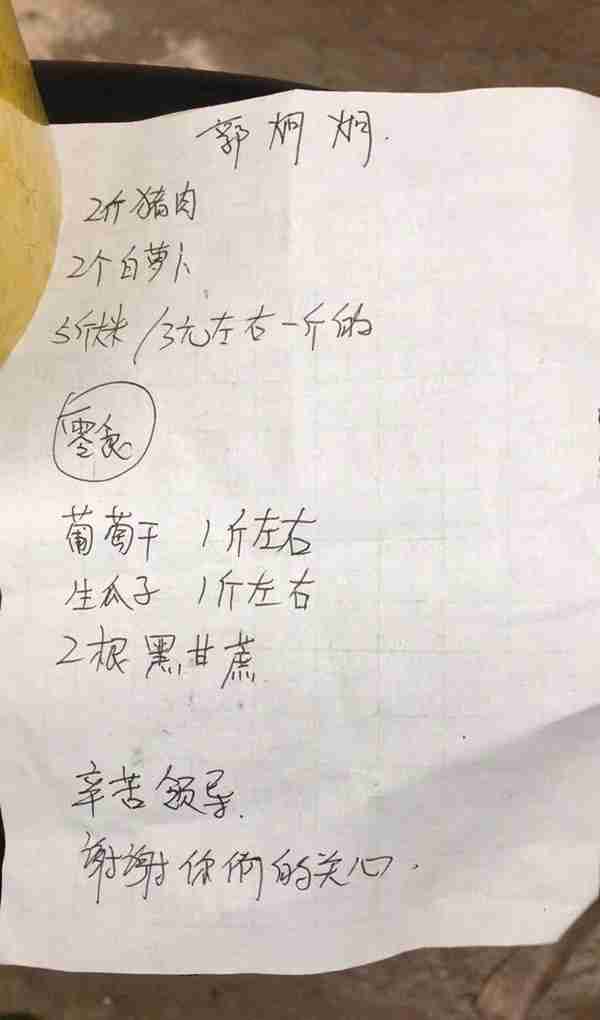 郭炯炯.
2斤猪肉
2个白萝卜
5斤米/3元左右一斤的
零食
葡萄干 1斤左右
生瓜子 1斤左右
2根黑甘蔗
辛苦领导.
谢谢你们的关心.